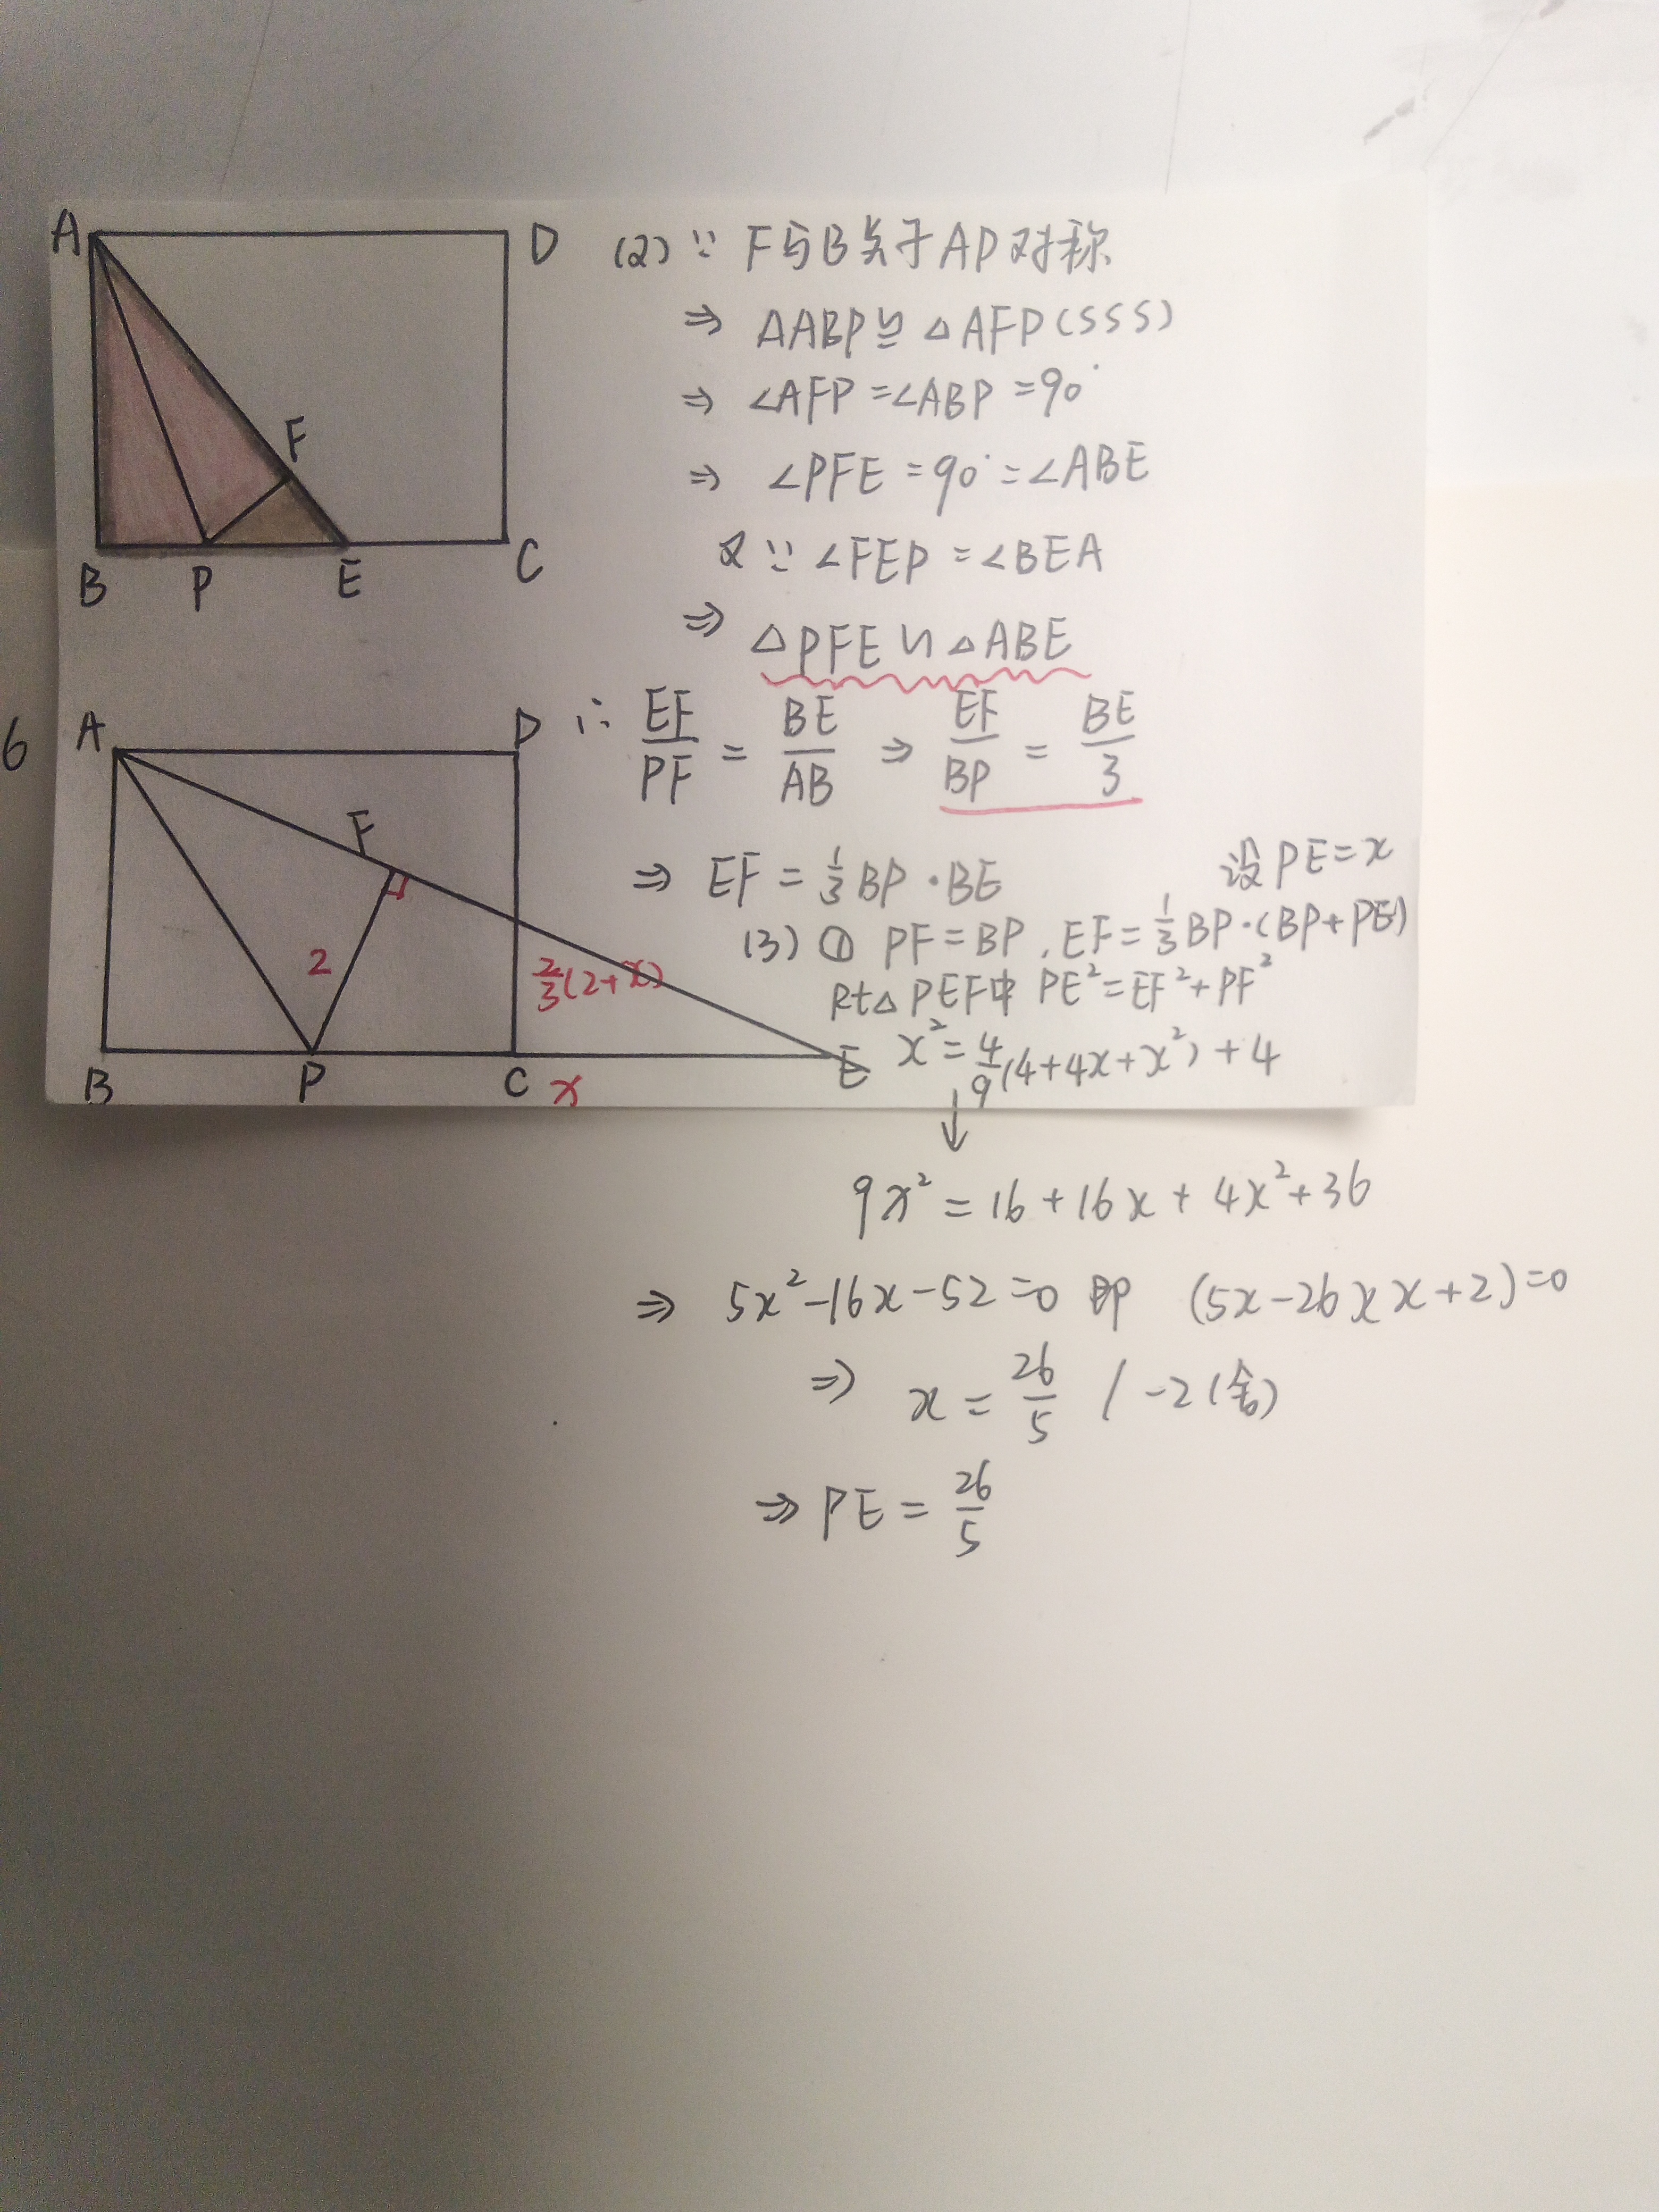 A D
F
B P E C
(2) ∵ F与B关于AP对称
⇒ △ABP≌△AFP(SSS)
⇒ ∠AFP=∠ABP=90°
⇒ ∠PFE=90°=∠ABE
又∵ ∠FEP=∠BEA
⇒ △PFE∽△ABE
∴ EF/PF = BE/AB ⇒ EF/BP = BE/3
⇒ EF=1/3BP·BE 设PE=x
(3) ① PF=BP, EF=1/3BP·(BP+PE)
Rt△PEF中 PE²=EF²+PF²
x²=4/9(4+4x+x²)+4
6
A D
F
2
2/3(2+x)
B P C x E
↓
9x²=16+16x+4x²+36
⇒ 5x²-16x-52=0 即 (5x-26)(x+2)=0
⇒ x=26/5 / -2(舍)
⇒ PE=26/5